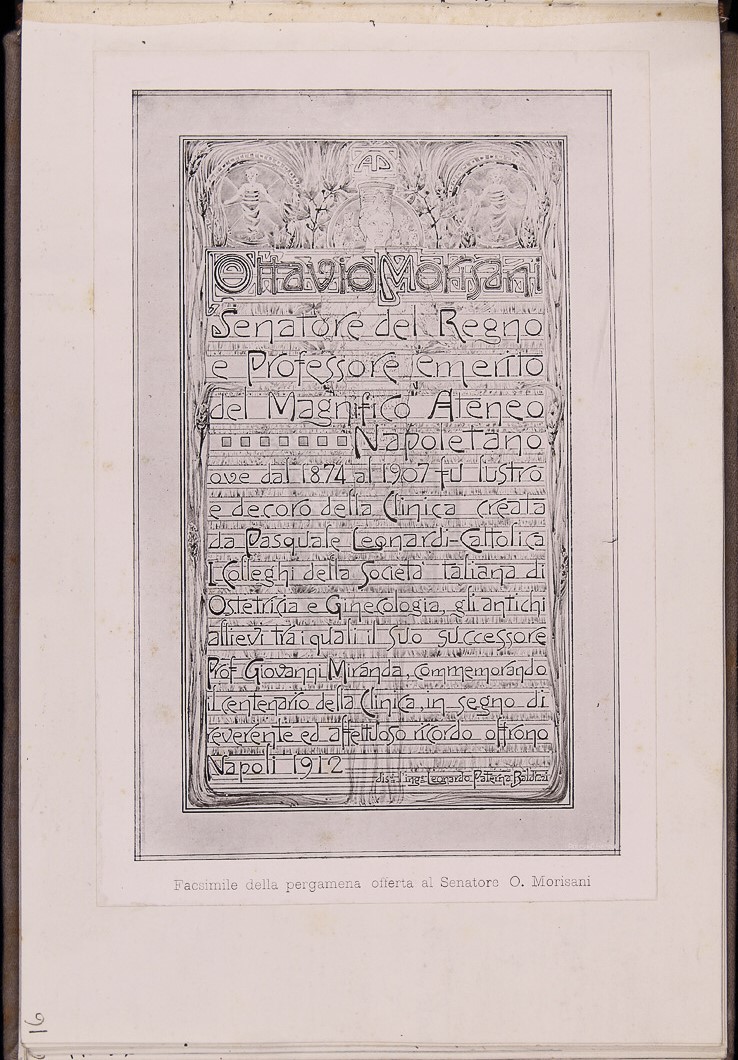 AD
Ottavio Morisani
Senatore del Regno
e Professore emerito
del Magnifico Ateneo
Napoletano
ove dal 1874 al 1907 fu lustro
e decoro della Clinica creata
da Pasquale Leonardi-Cattolica
I Colleghi della Società Italiana di
Ostetricia e Ginecologia, gli antichi
allievi tra i quali il suo successore
Prof Giovanni Miranda, commemorando
il centenario della Clinica, in segno di
reverente ed affettuoso ricordo offrono
Napoli 1912
dis: l'ing: Leonardo Paterna Baldizzi
Facsimile della pergamena offerta al Senatore O. Morisani
16